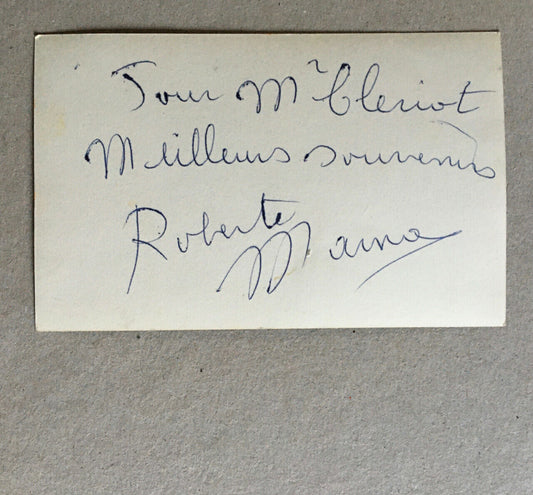 Pour Mr Cleriot
Meilleurs souvenirs
Roberte
Marna